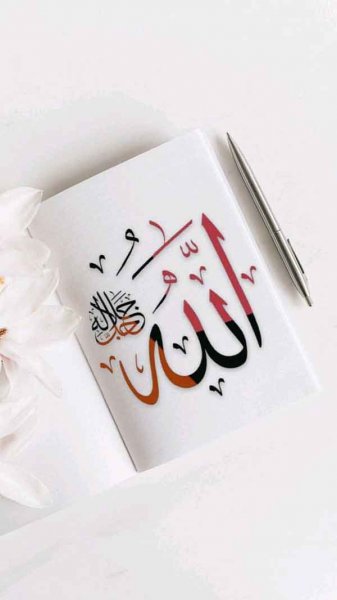 اللَّهُ
جل جلاله